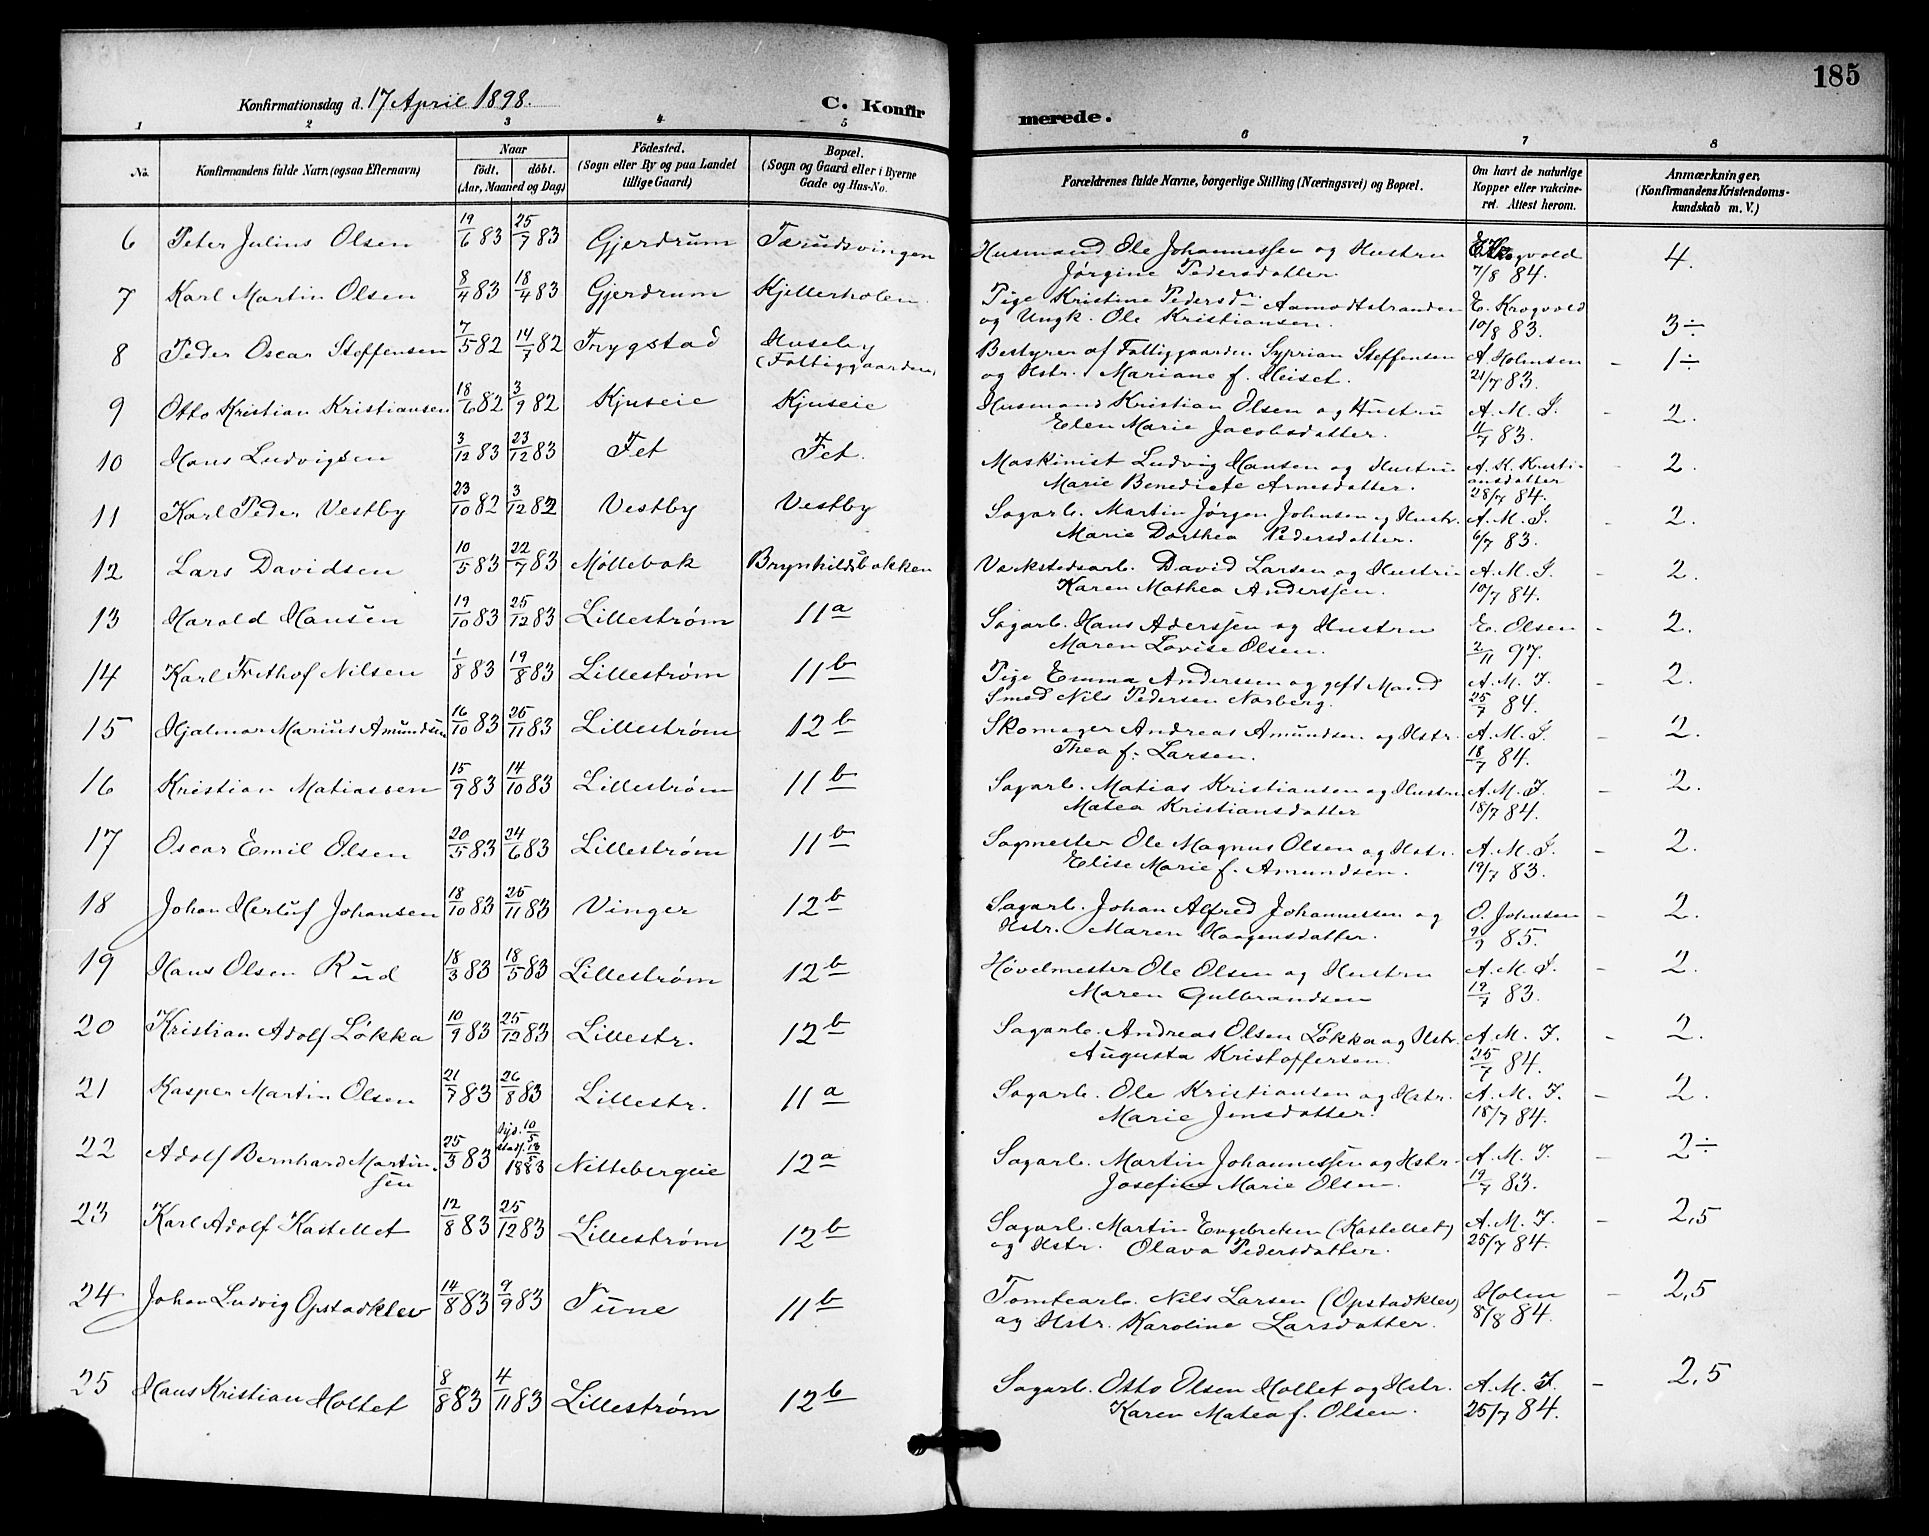 185
Konfirmationsdag d. 17 April 1898.
C. Konfirmerede.
1 2 3 4 5 6 7 8
No.
Konfirmandens fulde Navn (ogsaa Efternavn)
Naar
født. døbt.
(Aar, Maaned og Dag)
Födested.
(Sogn eller By og paa Landet
tillige Gaard)
Bopæl.
(Sogn og Gaard eller i Byerne
Gade og Hus-No.
Forældrenes fulde Navne, borgerlige Stilling (Næringsvei) og Bopæl.
Om havt de naturlige
Kopper eller vakcine-
ret. Attest herom.
Anmærkninger,
(Konfirmandens Kristendoms-
kundskab m. V.)
6 Peter Julius Olsen 19/6 83 25/7 83 Gjerdrum Tærudsvingen Husmand Ole Johannessen og Hustru E. Krogvold 4.
Jørgine Pedersdatter 7/8 84.
7 Karl Martin Olsen 8/4 83 18/4 83 Gjerdrum Kjellerholen Pige Kristine Pedersd. Aamodtstranden E. Krogvold
og Ungk. Ole Kristiansen. 10/8 83. 3÷
8 Peder Oscar Steffensen 7/5 82 14/7 82 Trygstad Huseby Bestyrer af Fattiggaarden Syprian Steffensen A. Holmsen - 1÷
(Fattiggaarden) og Hstr. Mariane f. Heiset. 21/7 83.
9 Otto Kristian Kristiansen 18/6 82 3/9 82 Kjuseie Kjuseie Husmand Kristian Olsen og Hustru A. M. I. - 2.
Elen Marie Jacobsdatter. 11/7 83.
10 Hans Ludvigsen 3/12 83 23/12 83 Fet Fet. Maskinist Ludvig Hansen og Hustru A. K. Kristi- - 2.
Marie Benedicte Arnesdatter. ansdatter
28/7 84.
11 Karl Peder Vestby 23/10 82 3/12 82 Vestby Vestby Sagarb. Martin Jørgen Johnsen og Hustr. A. M. I. - 2.
Marie Dorthea Pedersdatter. 6/7 83.
12 Lars Davidsen 10/5 83 22/7 83 Møllebak Brynhildsbakken Værkstedsarb. David Larsen og Hustru A. M. I. - 2.
Karen Mathea Anderssen. 10/7 84.
13 Harald Hansen 19/10 83 25/12 83 Lillestrøm 11a Sagarb. Hans Aderssen og Hustru E. Olsen - 2.
Maren Lovise Olsen. 2/11 97.
14 Karl Frithof Nilsen 1/8 83 19/8 83 Lillestrøm 11b Pige Emma Anderssen og gift Mand A. M. I. - 2.
Smed Nils Pedersen Norberg. 25/7 84.
15 Hjalmar Marius Amundsen 16/10 83 25/11 83 Lillestrøm 12b Skomager Andreas Amundsen og Hstr. A. M. I. - 2.
Thea f. Larsen. 18/7 84.
16 Kristian Matiassen 15/9 83 14/10 83 Lillestrøm 11b Sagarb. Matias Kristiansen og Hustru A. M. I. - 2.
Matea Kristiansdatter 18/7 84.
17 Oscar Emil Olsen 20/5 83 24/6 83 Lillestrøm 11b Sagmester Ole Magnus Olsen og Hstr. A. M. I. - 2.
Elise Marie f. Amundsen. 19/7 83.
18 Johan Herluf Johansen 18/10 83 25/11 83 Vinger 12b Sagarb. Johan Alfred Johannessen og O. Johnsen - 2.
Hstr. Maren Haagensdatter. 85.
19 Hans Olsen Rud 18/3 83 18/5 83 Lillestrøm 12b Høvelmester Ole Olsen og Hustru A. M. I. - 2.
Maren Gulbrandsen 19/7 83.
20 Kristian Adolf Løkka 10/9 83 25/12 83 Lillestr. 12b Sagarb. Andreas Olsen Løkka og Hstr. A. M. I. - 2.
Augusta Kristoffersen. 25/7 84.
21 Kasper Martin Olsen 21/7 83 26/8 83 Lillestr. 11a Sagarb. Ole Kristiansen og Hstr. A. M. I. - 2.
Marie Jensdatter. 18/7 84.
22 Adolf Bernhard Martin- 25/3 83 Hjd. 10/5 Stadf. 13/5 1883 Nittebergeie 12a Sagarb. Martin Johannessen og Hstr. A. M. I. - 2÷
sen Josefine Marie Olsen. 19/7 83.
23 Karl Adolf Kastellet 12/8 83 25/12 83 Lillestrøm 12b Sagarb. Martin Engebretsen (Kastellet) A. M. I. - 2,5
og Hstr. Olava Pedersdatter. 25/7 84.
24 Johan Ludvig Opstadklev 14/8 83 9/9 83 Tune 11b Tomtearb. Nils Larsen (Opstadklev) Holm - 2,5
og Hstr. Karoline Larsdatter. 8/8 84.
25 Hans Kristian Holtet 8/8 83 4/11 83 Lillestrøm 12b Sagarb. Otto Olsen Holtet og Hstr. A. M. I. - 2,5
Karen Matea f. Olsen. 25/7 84.